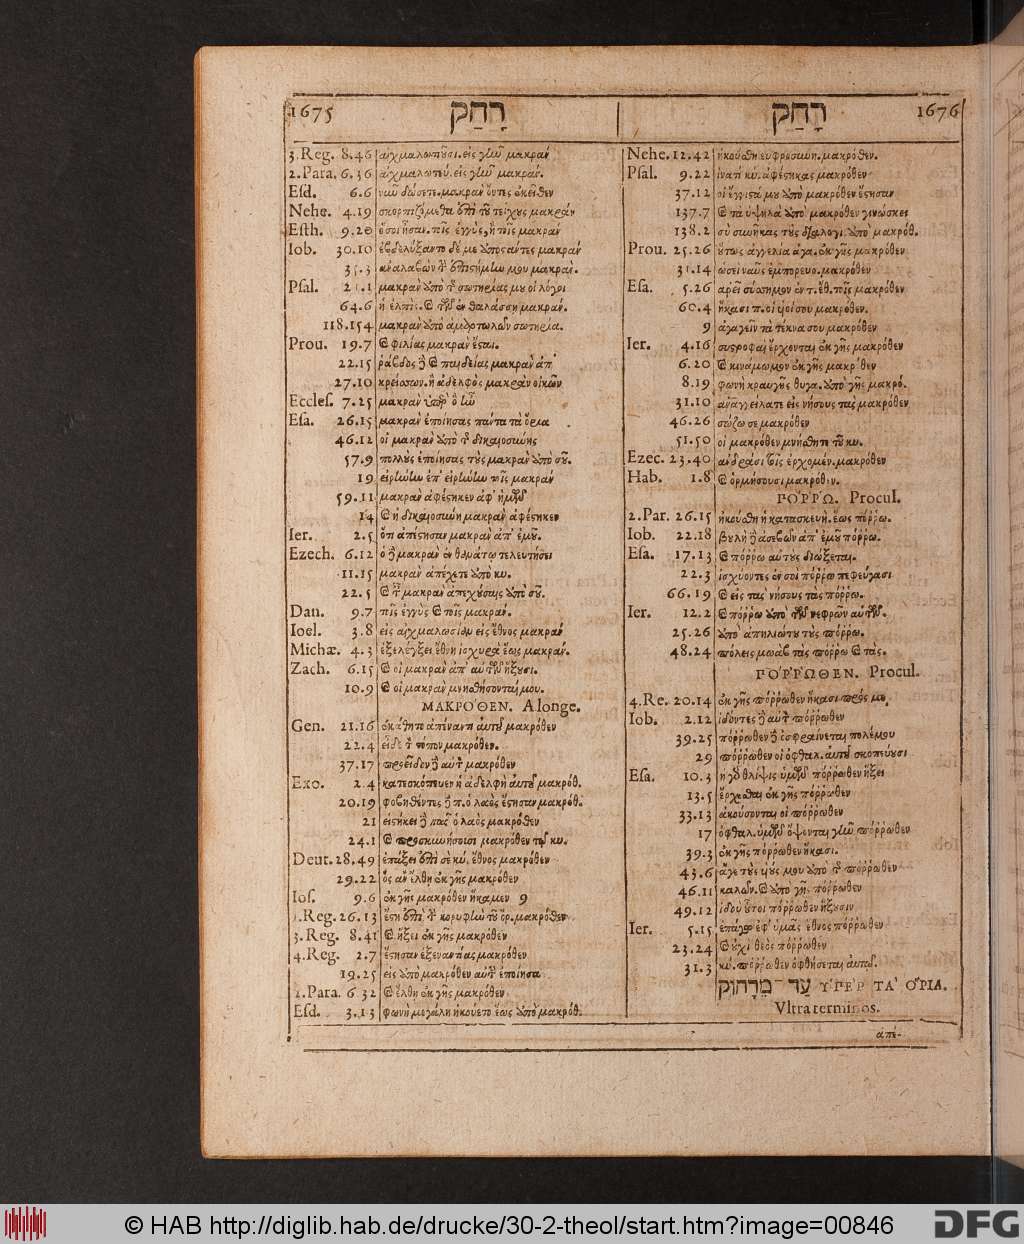 1675 רָחַק | רָחַק 1676
3.Reg. 8.46 αἰχμαλωτιοῦσι. εἰς γῆν μακρὰν
2.Para. 6.36 αἰχμαλωτεύ. εἰς γῆν μακρὰν.
Esd. 6.6 μακρὰν ὄντες ἐκεῖθεν
Nehe. 4.19 σκορπιζόμεθα ἐπὶ τοῦ τείχους μακρὰν
Esth. 9.20 ὅσοι ἦσαν. τοῖς ἐγγὺς, ἢ τοῖς μακρὰν
Iob. 30.10 ἐβδελύξαντο δέ με ἀποστάντες μακράν
35.3 ἀναλαβὼν τ̀ ἐπιστήμην μου μακρὰν.
Psal. 21.1 μακρὰν ἀπὸ τ̀ σωτηρίας μου οἱ λόγοι
64.6 ἡ ἐλπὶς. καὶ τῶν ἐν θαλάσσῃ μακράν.
118.154 μακρὰν ἀπὸ ἁμαρτωλῶν σωτηρία.
Prou. 19.7 καὶ φιλίας μακρὰν ἔσται.
22.15 ῥάβδος ἢ καὶ παιδείας μακρὰν ἀπ'
27.10 κρείσσων. ἢ ἀδελφὸς μακρὰν οἰκῶν
Eccles. 7.25 μακρὰν ὑπὲρ ὃ ἦν
Esa. 26.15 μακρὰν ἐποίησας πάντα τὰ
46.12 οἱ μακρὰν ἀπὸ τ̀ δικαιοσύνης
57.9 πολλοὺς ἐποίησας τοὺς μακρὰν ἀπὸ σοῦ.
19 εἰρήνην ἐπ' εἰρήνην τοῖς μακρὰν
59.11 μακρὰν ἀφέστηκεν ἀφ' ἡμῶν
14 καὶ ἡ δικαιοσύνη μακρὰν ἀφέστηκεν
Ier. 2.5 ὅτι ἀπέστησαν μακρὰν ἀπ' ἐμοῦ.
Ezech. 6.12 ὁ ἢ μακρὰν ἐν θανάτῳ τελευτήσει
11.15 μακρὰν ἀπέχετε ἀπὸ κυ.
22.5 καὶ τ̀ μακρὰν ἀπεχούσαις ἀπὸ σοῦ.
Dan. 9.7 τοῖς ἐγγὺς καὶ τοῖς μακράν.
Ioel. 3.8 εἰς αἰχμαλωσίαν εἰς ἔθνος μακρὰν
Michæ. 4.3 ἐξελέγξει ἔθνη ἰσχυρὰ ἕως μακράν.
Zach. 6.15 καὶ οἱ μακρὰν ἀπ' αὐτῶν ἥξουσι.
10.9 καὶ οἱ μακρὰν μνησθήσονταί μου.
ΜΑΚΡΟΘΕΝ. A longe.
Gen. 21.16 ἐκάθητο ἀπέναντι αὐτοῦ μακρόθεν
22.4 εἶδε τ̀ τόπον μακρόθεν.
37.17 προεῖδον ἢ αὐτ̀ μακρόθεν
Exo. 2.4 κατεσκόπευεν ἡ ἀδελφὴ αὐτοῦ μακρόθ.
20.19 φοβηθέντες ἢ π. ὁ λαὸς ἔστησαν μακρόθ.
21 εἱστήκει ἢ πᾶς ὁ λαὸς μακρόθεν
24.1 καὶ προσκυνήσουσι μακρόθεν τῷ κυ.
Deut. 28.49 ἐπάξει ἐπὶ σὲ κύ. ἔθνος μακρόθεν
29.22 ὃς ἂν ἔλθῃ ἐκ γῆς μακρόθεν
Ios. 9.6 ἐκ γῆς μακρόθεν ἥκαμεν 9
1.Reg. 26.13 ἔστη ἐπὶ τ̀ κορυφὴν τοῦ ὄρ. μακρόθεν
3.Reg. 8.41 καὶ ἥξει ἐκ γῆς μακρόθεν
4.Reg. 2.7 ἔστησαν ἐξεναντίας μακρόθεν
19.25 εἰς ἀπὸ μακρόθεν αὐτ̀ ἐποίησα
2.Para. 6 32 καὶ ἔλθῃ ἐκ γῆς μακρόθεν
Esd. 3.13 φωνὴ μεγάλη ἠκούετο ἕως ἀπὸ μακρόθ.
Nehe. 12.42 ἠκούσθη εὐφροσύνη. μακρόθεν.
Psal. 9.22 ἱνατί κύ. ἀφέστηκας μακρόθεν
37.12 οἱ ἔγγιστά μου ἀπὸ μακρόθεν ἔστησαν
137.7 καὶ τὰ ὑψηλὰ ἀπὸ μακρόθεν γινώσκει
138.2 σὺ συνῆκας τοὺς διαλογι. ἀπὸ μακρόθ.
Prou. 25.26 οὕτως ἀγγελία ἀγα. ἐκ γῆς μακρόθεν
31.14 ὡσεὶ ναῦς ἐμπορευο. μακρόθεν
Esa. 5.26 ἀρεῖ σύσσημον ἐν τ. ἔθ. τοῖς μακρόθεν
60.4 ἥκασι π. οἱ υἱοί σου μακρόθεν.
9 ἀγαγεῖν τὰ τέκνα σου μακρόθεν
Ier. 4.16 συστροφαὶ ἔρχονται ἐκ γῆς μακρόθεν
6.20 καὶ κινάμωμον ἐκ γῆς μακρόθεν
8.19 φωνὴ κραυγῆς θυγα. ἀπὸ γῆς μακρό.
31.10 ἀναγγείλατε εἰς νήσους τὰς μακρόθεν
46.26 σώζω σε μακρόθεν
51.50 οἱ μακρόθεν μνήσθητε τοῦ κυ.
Ezec. 23.40 ἀνδράσι τοῖς ἐρχομέν. μακρόθεν
Hab. 1.8 καὶ ὁρμήσουσι μακρόθεν.
ΠΟΡΡΩ. Procul.
2.Par. 26.15 ἠκούσθη ἡ κατασκευή. ἕως πόρρω.
Iob. 22.18 βουλὴ ἢ ἀσεβῶν ἀπ' ἐμοῦ πόρρω.
Esa. 17.13 καὶ πόρρω αὐτοὺς διώξεται.
22.3 ἰσχύοντες ἐν σοὶ πόρρω πεφεύγασι
66.19 καὶ εἰς τὰς νήσους τὰς πόρρω.
Ier. 12.2 καὶ πόρρω ἀπὸ τῶν νεφρῶν αὐτῶν.
25.26 ἀπὸ ἀπηλιώτου τοὺς πόρρω.
48.24 πόλεις μωὰβ τὰς πόρρω καὶ τὰς.
ΠΟΡΡΩΘΕΝ. Procul.
4.Re. 20.14 ἐκ γῆς πόρρωθεν ἥκασι πρός με
Iob. 2.12 ἰδόντες ἢ αὐτ̀ πόρρωθεν
39.25 πόρρωθεν ἢ ὀσφραίνεται πολέμου
29 πόρρωθεν οἱ ὀφθαλ. αὐτοῦ σκοπεύουσι
Esa. 10.3 ἡ γὰρ θλίψις ὑμῶν πόρρωθεν ἥξει
13.5 ἔρχεσθαι ἐκ γῆς πόρρωθεν
33.13 ἀκούσονται οἱ πόρρωθεν
17 ὀφθαλ. ὑμῶν ὄψονται γῆν πόρρωθεν
39.3 ἐκ γῆς πόρρωθεν ἥκασι.
43.6 ἄγε τοὺς υἱούς μου ἀπὸ τ̀ πόρρωθεν
46.11 καλῶν. καὶ ἀπὸ γῆς πόρρωθεν
49.12 ἰδοὺ οὗτοι πόρρωθεν ἥξουσιν
Ier. 5.15 ἐπάγω ἐφ' ὑμᾶς ἔθνος πόρρωθεν
23.24 καὶ οὐχὶ θεὸς πόρρωθεν
31.3 κύ. πόρρωθεν ὀφθήσεται αὐτῷ.
עַד־מֵרָחוֹק ΥΠΕΡ ΤΑ ΟΡΙΑ.
Vltra terminos.
ἀπε-
© HAB http://diglib.hab.de/drucke/30-2-theol/start.htm?image=00846
DFG